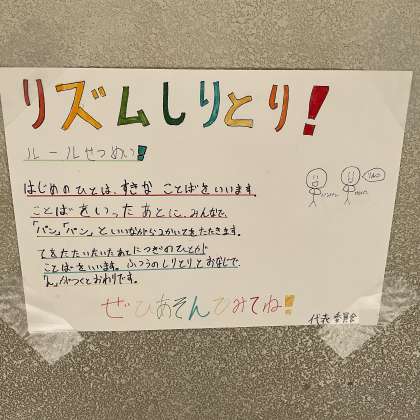 リズムしりとり!
ルールせつめい!
はじめのひとは、すきな ことばをいいます。
ことばをいったあとに、みんなで、
「パン」「パン」といいながら2かいてをたたきます。
てをたたいたあとにつぎのひとが
ことばをいいます。ふつうのしりとりとおなじで、
「ん」がつくとおわりです。
ぜひあそんでみてね!
代表委員会